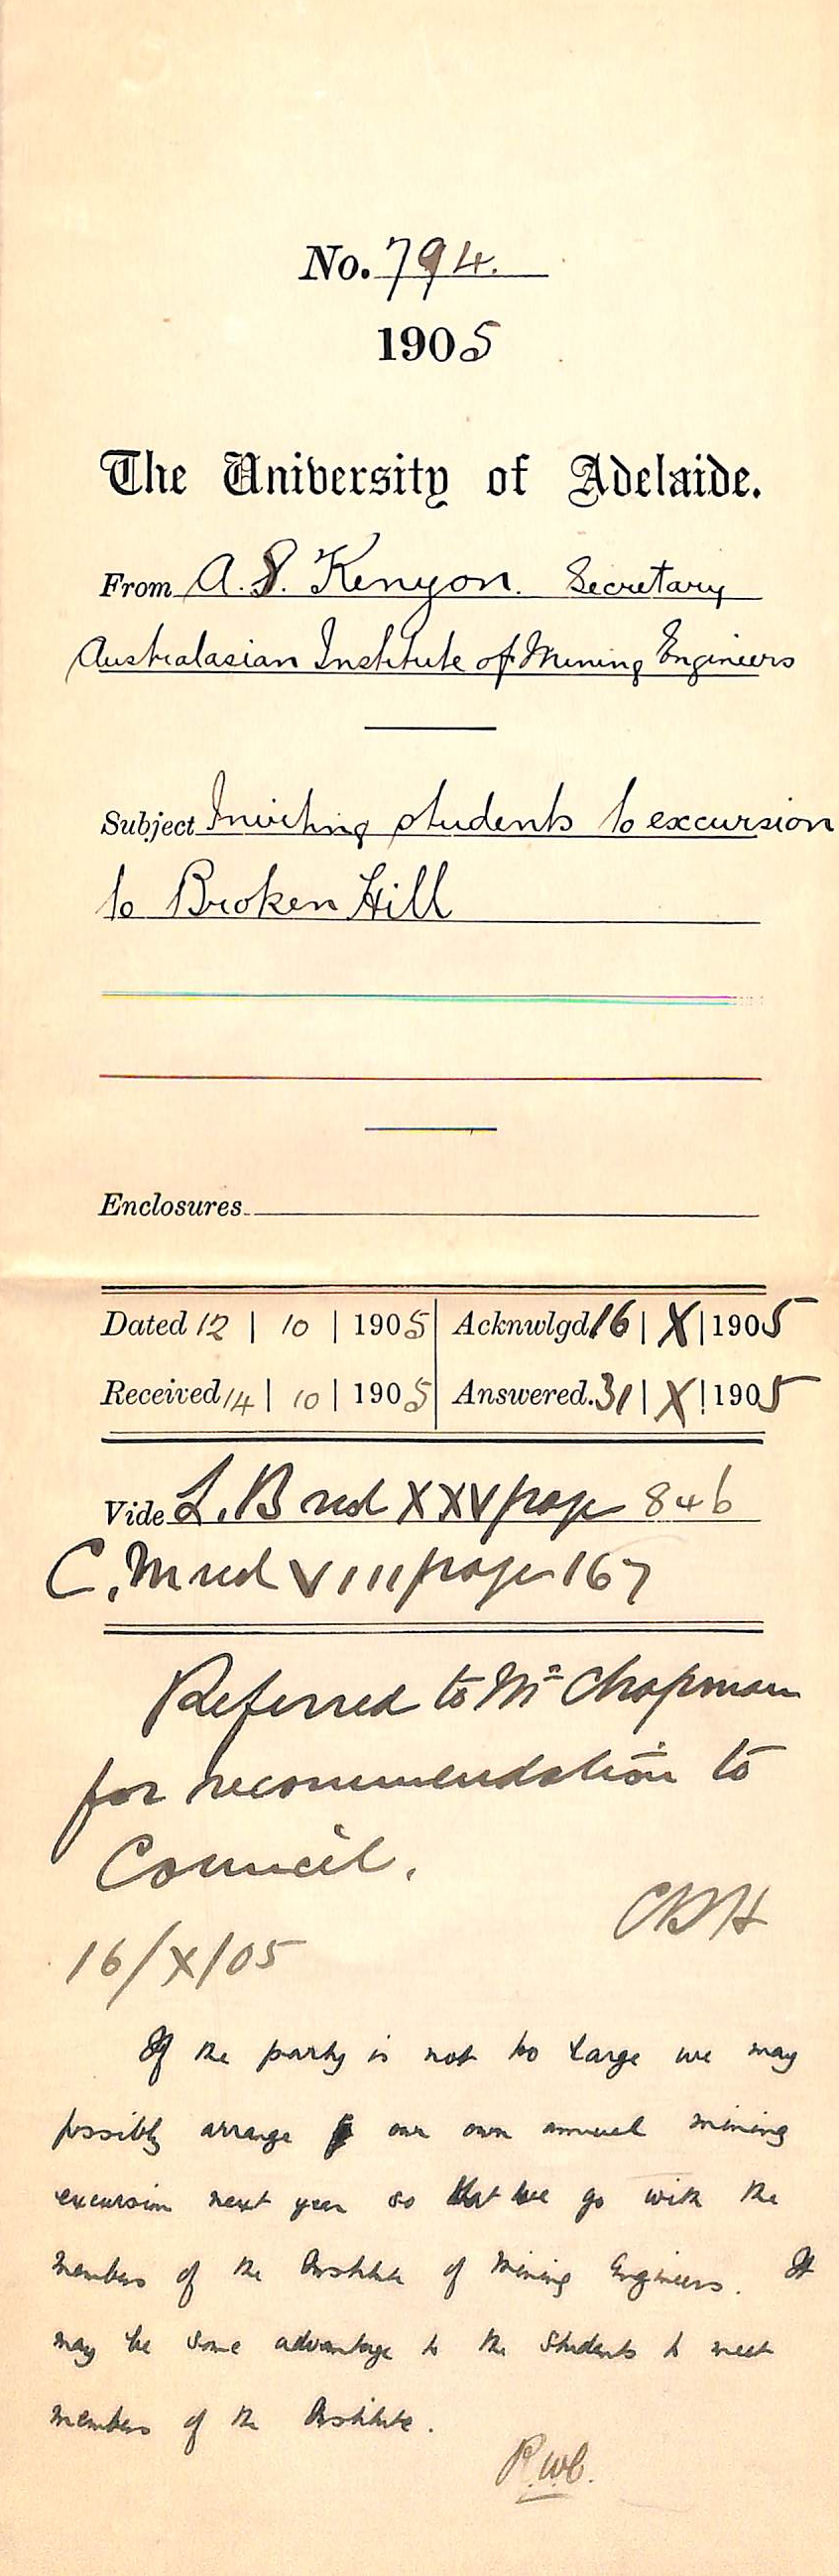 No. 794.
1905
The University of Adelaide.
From A. S. Kenyon. Secretary
Australasian Institute of Mining Engineers
Subject Inviting students to excursion
to Broken Hill
Enclosures
Dated 12 | 10 | 1905 Acknwlgd. 16 | X | 1905
Received 14 | 10 | 1905 Answered. 31 | X | 1905
Vide L.B red XXV page 846
C.M red VIII page 167
Referred to Mr Chapman
for recommendation to
Council.
CRH
16/X/05
If the party is not too large we may
possibly arrange our own annual mining
excursion next year so that we go with the
members of the Institute of Mining Engineers. It
may be some advantage to the students to meet
members of the Institute.
R.W.C.